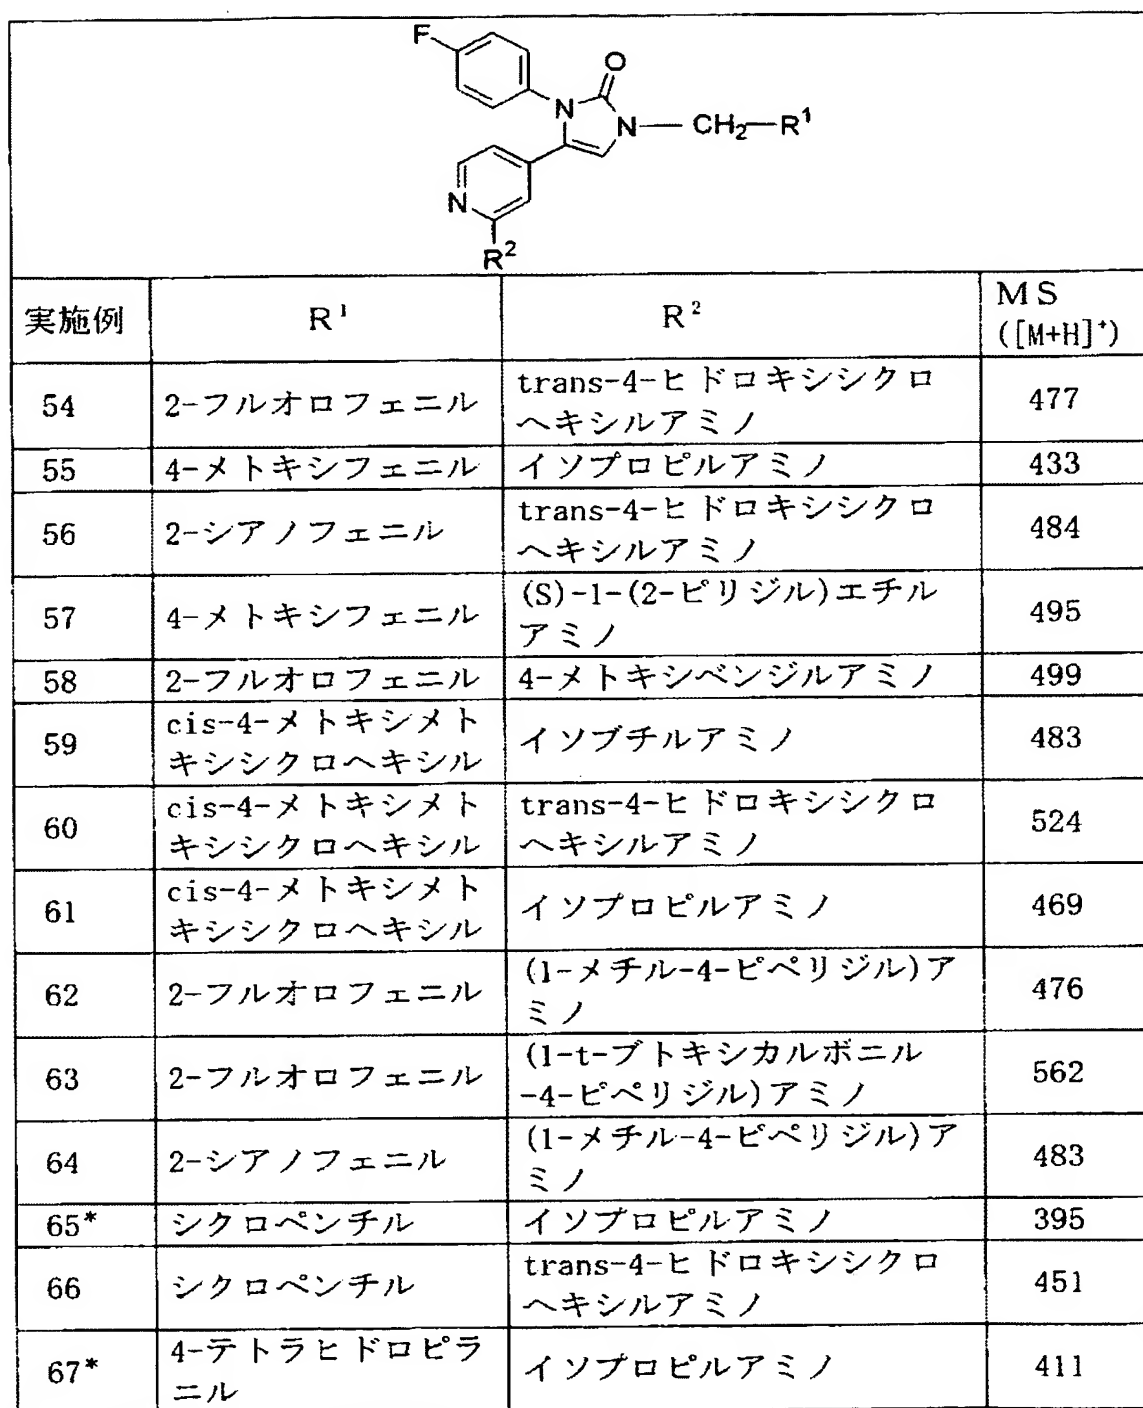 F
O
N
N
CH₂—R¹
N
R²
実施例 R¹ R² MS
([M+H]⁺)
54 2-フルオロフェニル trans-4-ヒドロキシシクロ
ヘキシルアミノ 477
55 4-メトキシフェニル イソプロピルアミノ 433
56 2-シアノフェニル trans-4-ヒドロキシシクロ
ヘキシルアミノ 484
57 4-メトキシフェニル (S)-1-(2-ピリジル)エチル
アミノ 495
58 2-フルオロフェニル 4-メトキシベンジルアミノ 499
59 cis-4-メトキシメト
キシシクロヘキシル イソブチルアミノ 483
60 cis-4-メトキシメト
キシシクロヘキシル trans-4-ヒドロキシシクロ
ヘキシルアミノ 524
61 cis-4-メトキシメト
キシシクロヘキシル イソプロピルアミノ 469
62 2-フルオロフェニル (1-メチル-4-ピペリジル)ア
ミノ 476
63 2-フルオロフェニル (1-t-ブトキシカルボニル
-4-ピペリジル)アミノ 562
64 2-シアノフェニル (1-メチル-4-ピペリジル)ア
ミノ 483
65* シクロペンチル イソプロピルアミノ 395
66 シクロペンチル trans-4-ヒドロキシシクロ
ヘキシルアミノ 451
67* 4-テトラヒドロピラ
ニル イソプロピルアミノ 411